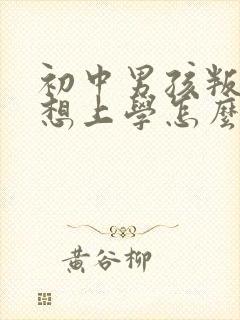 初中男孩叛
想上學怎麼
黃谷柳